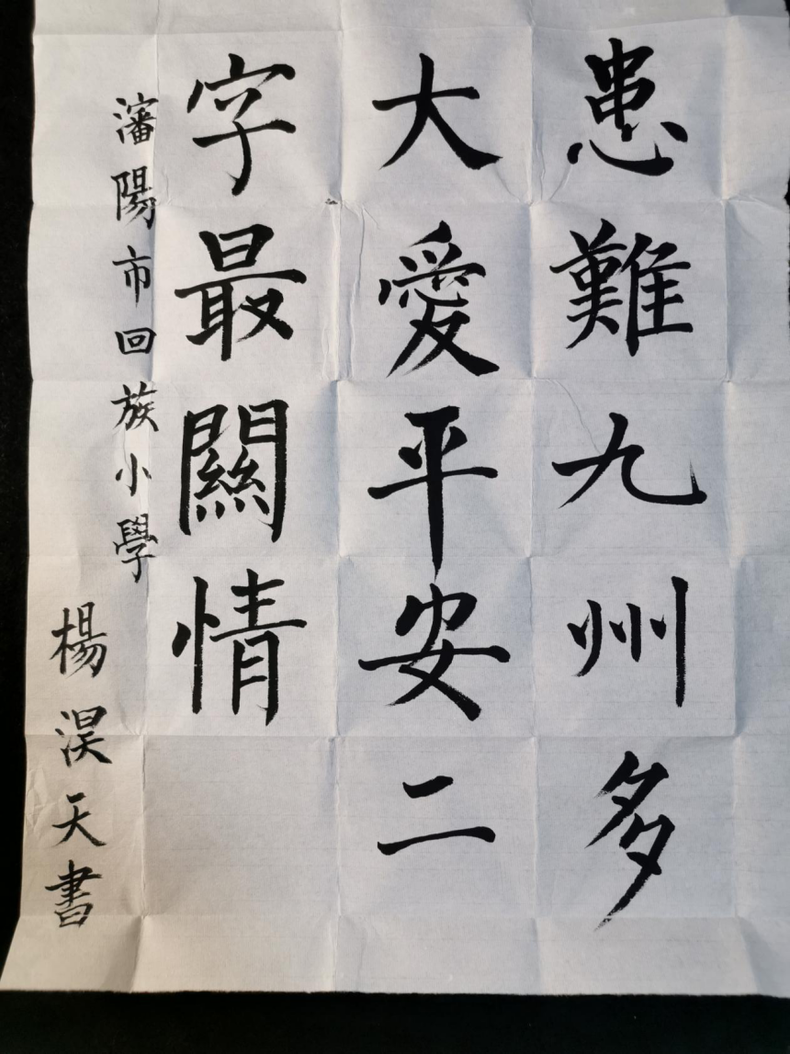 患難九州多
大愛平安二
字最關情
瀋陽市回族小學
楊淏天書